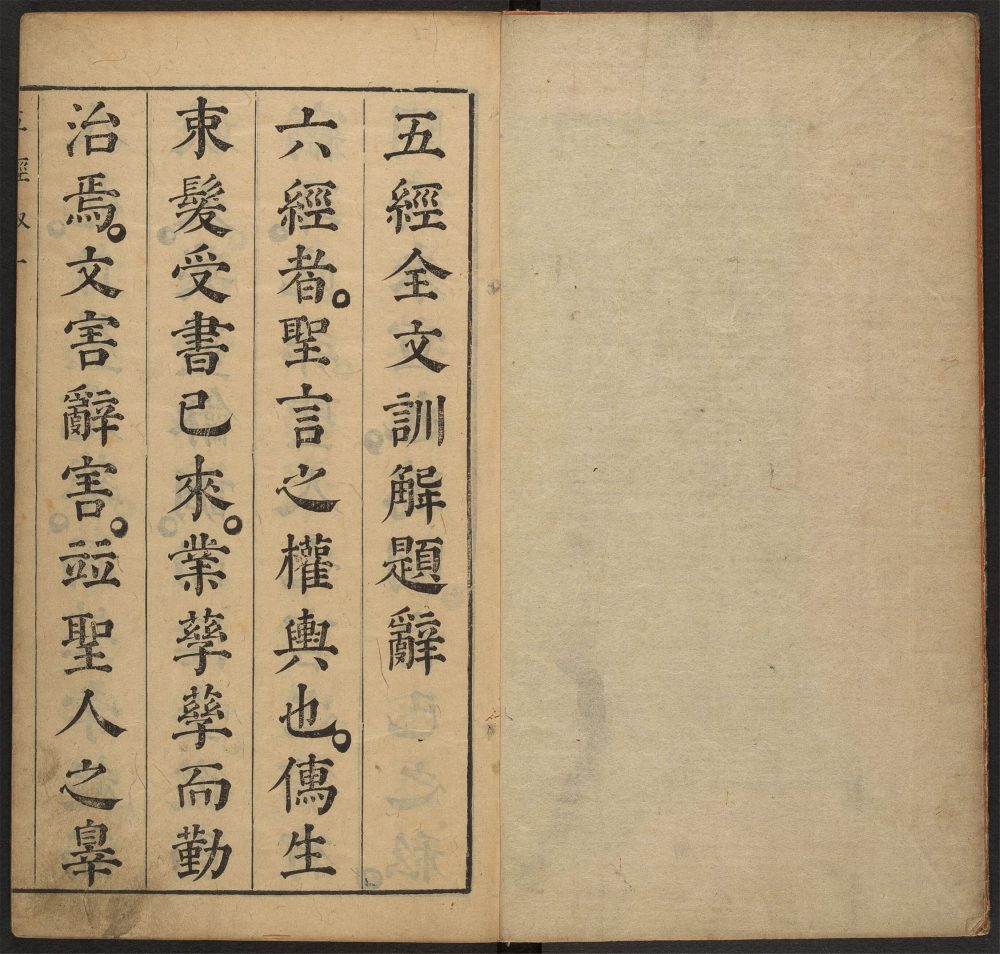 五經全文訓解題辭
六經者。聖言之權輿也。儁生
束髮受書已來。業孳孳而勤
治焉。文害辭害。竝聖人之辠
五經叙一